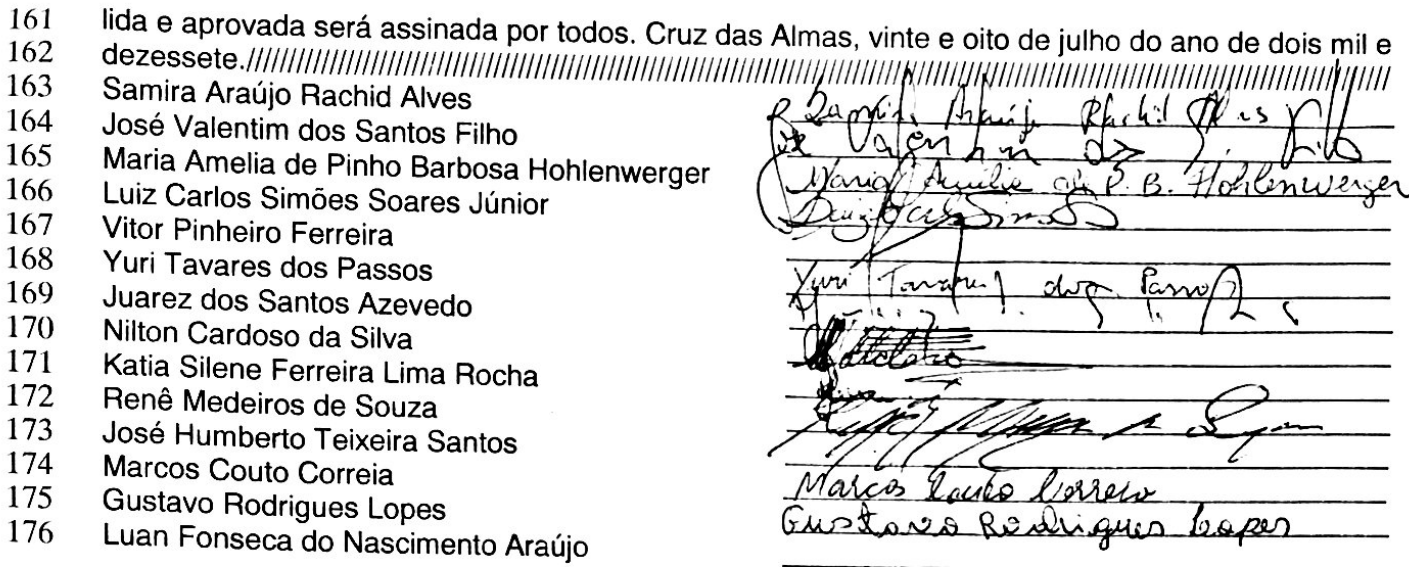 161 lida e aprovada será assinada por todos. Cruz das Almas, vinte e oito de julho do ano de dois mil e
162 dezessete.////////////////////////////////////////////////////////////////////////////////////////////////////
163 Samira Araújo Rachid Alves Samira Araújo Rachid Alves
164 José Valentim dos Santos Filho José Valentim dos S. Filho
165 Maria Amelia de Pinho Barbosa Hohlenwerger Maria Amelia de P. B. Hohlenwerger
166 Luiz Carlos Simões Soares Júnior Luiz Carlos Simões
167 Vitor Pinheiro Ferreira
168 Yuri Tavares dos Passos Yuri Tavares dos Passos
169 Juarez dos Santos Azevedo
170 Nilton Cardoso da Silva
171 Katia Silene Ferreira Lima Rocha
172 Renê Medeiros de Souza
173 José Humberto Teixeira Santos
174 Marcos Couto Correia Marcos Couto Correia
175 Gustavo Rodrigues Lopes Gustavo Rodrigues Lopes
176 Luan Fonseca do Nascimento Araújo